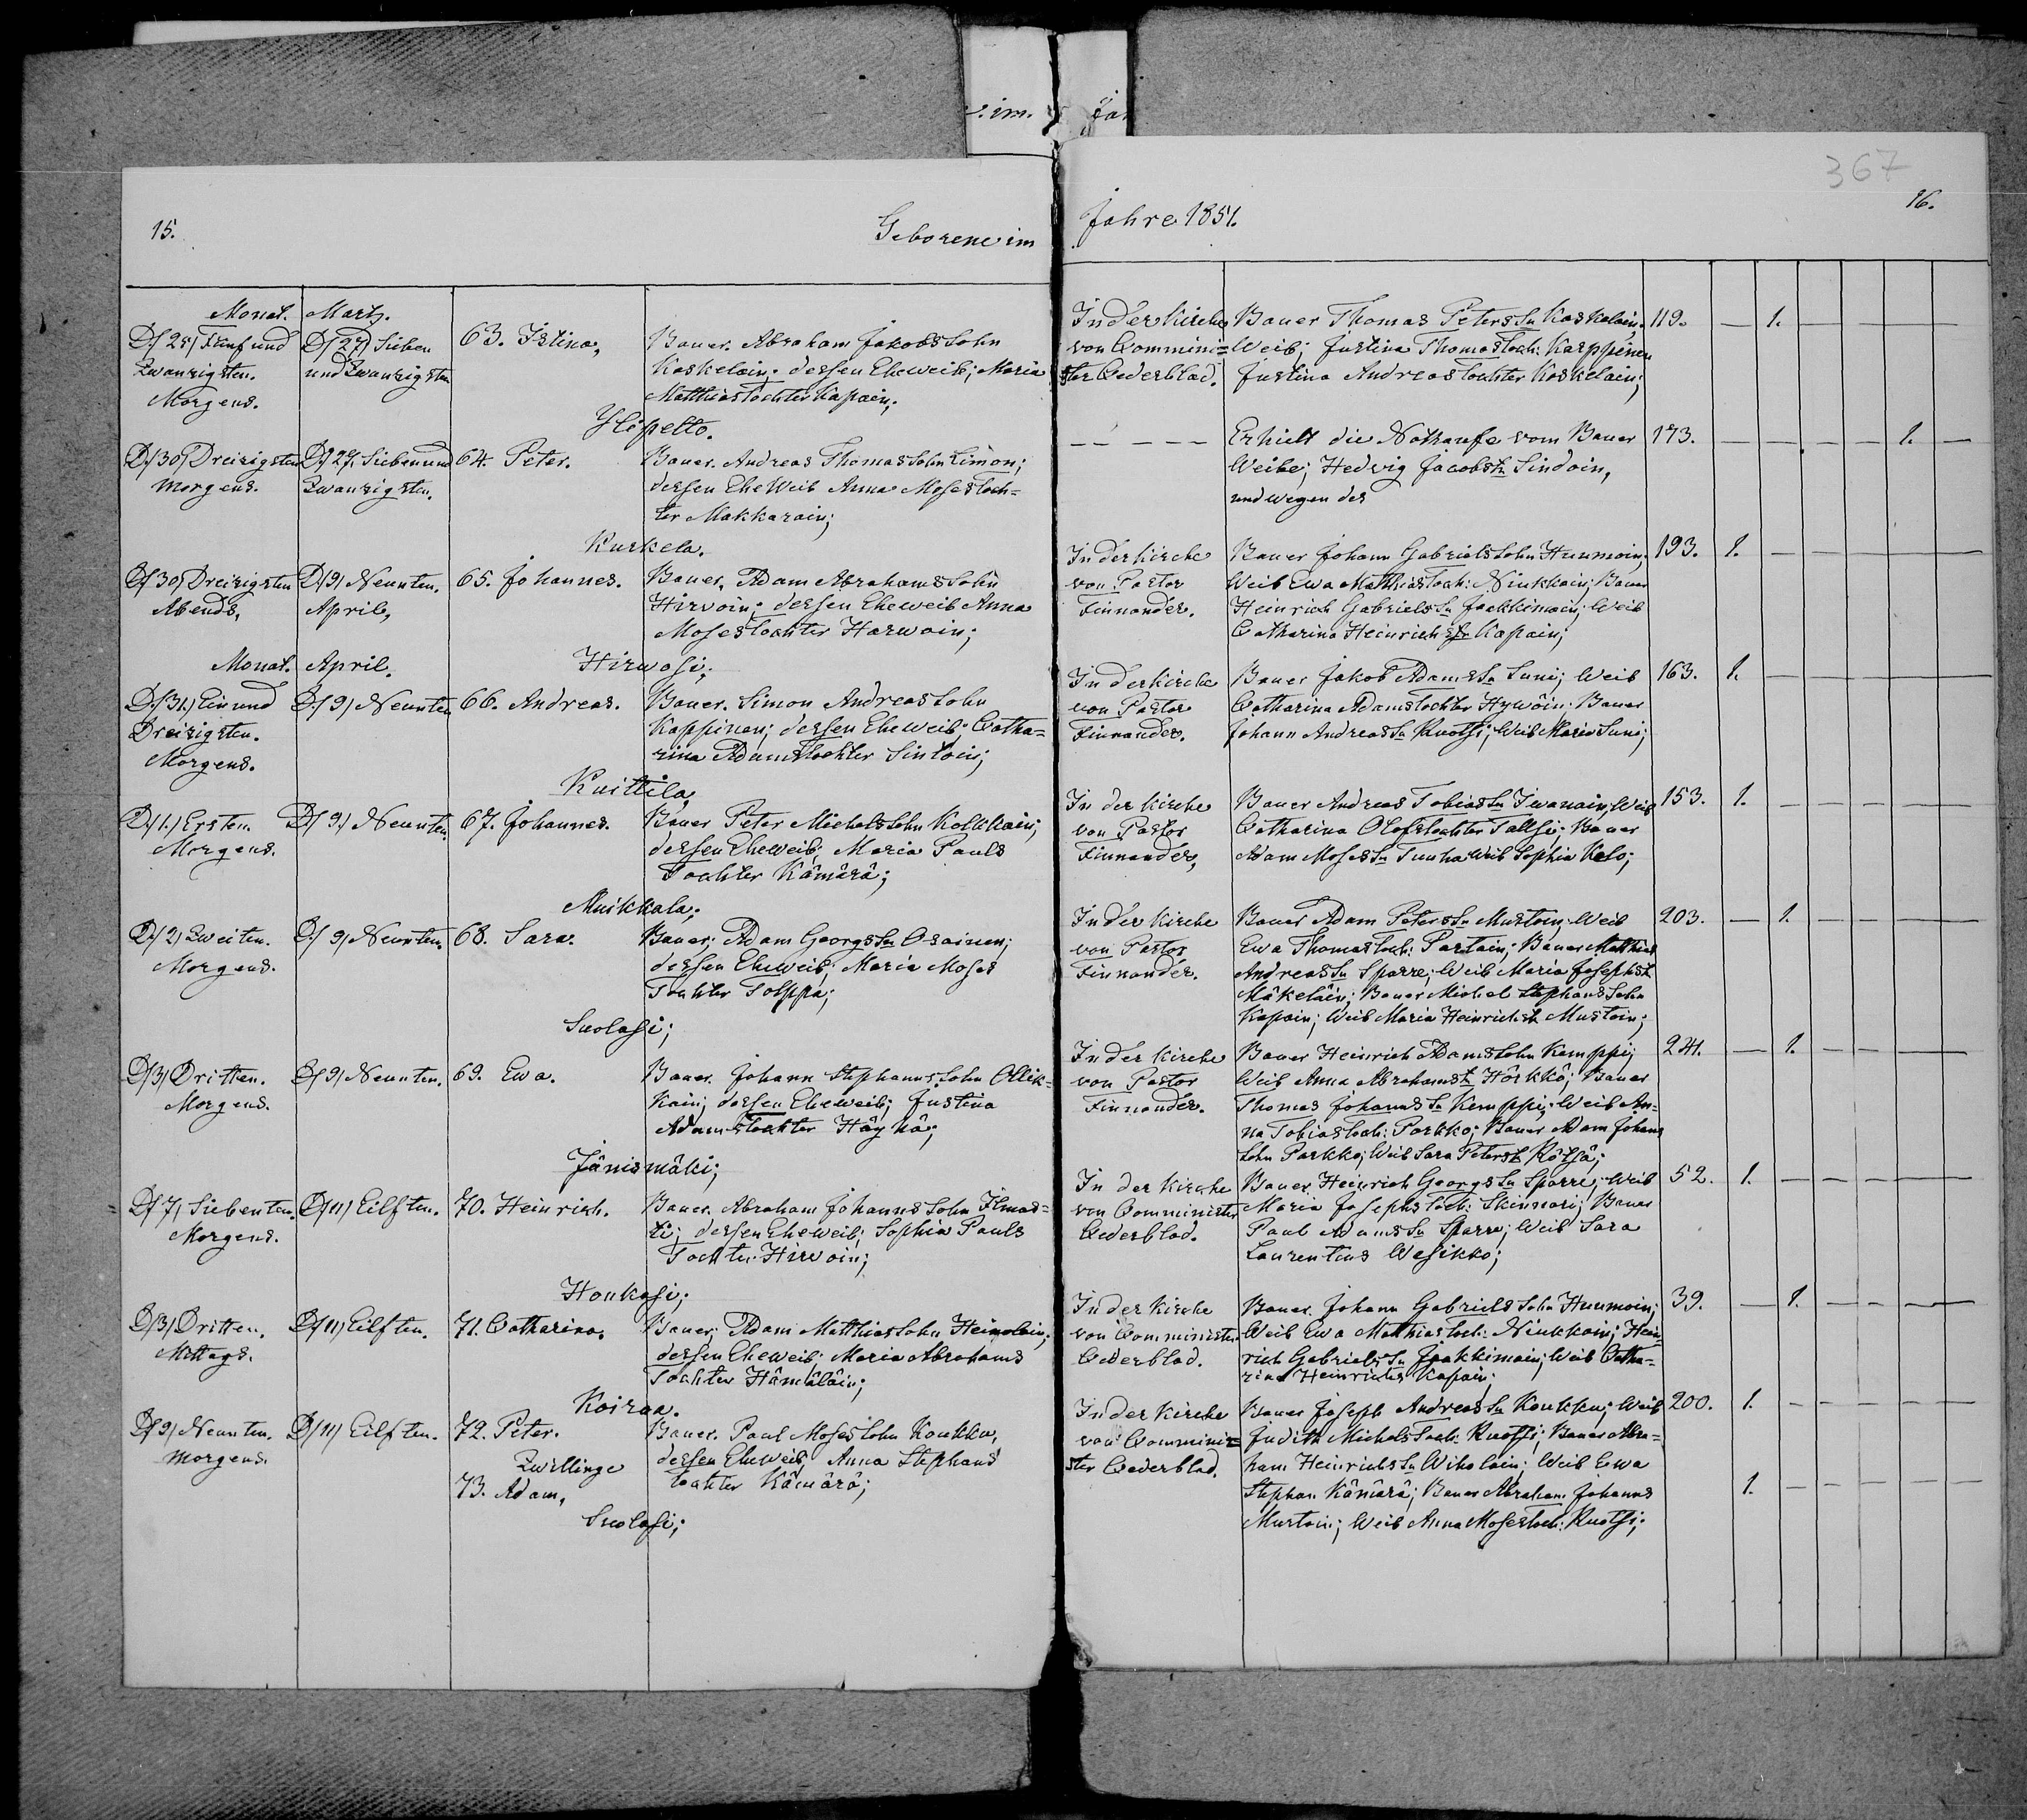 r. im. Jah
367
15. Geborene im Jahre 1851. 16.
Monat. Martz.
D/25/ Fünf und D/27/ Sieben 63. Istina, Bauer. Abraham Jakobs Sohn
Zwanzigsten. und Zwanzigsten Koskelain; dessen Eheweib; Maria
Morgens. Matthias Tochter Kapain;
Ylipelto.
D./30/ Dreizigsten D./27/ Sieben und 64. Peter. Bauer. Andreas Thomas Sohn Simon;
Morgens. Zwanzigsten. dessen Ehe Weib Anna Moses Toch=
ter Makkarain;
Kurkela.
D/30/ Dreizigsten D/9/ Neunten. 65. Johannes. Bauer. Adam Abrahams Sohn
Abends, April, Hirvoin; dessen Eheweib Anna
Moses tochter Harwain;
Monat. April. Hirwosi;
D./31./ Ein und D/9/ Neunten 66. Andreas. Bauer. Simon Andreas Sohn
Dreizigsten. Kappinen; dessen Eheweib; Catha=
Morgens. rina Adams Tochter Sintoin;
Kuittila,
D./1./ Ersten. D/9./ Neunten. 67. Johannes. Bauer Peter Michels Sohn Kolkkain;
Morgens. dessen Eheweib; Maria Pauls
Tochter Kämärä;
Muikkala;
D./2/ Zweiten. D./9/ Neunten. 68. Sara. Bauer; Adam Georgs Sn Orainen;
Morgens. dessen Eheweib; Maria Moses
Tochter Tolppa;
Suolasi;
D/3/ Dritten. D/9/ Neunten. 69. Ewa. Bauer. Johann Stephanns Sohn Ollik=
Morgens. kain; dessen Eheweib; Justina
Adams tochter Häyhä;
Jänismäki;
D/7/ Siebenten. D/11/ Eilften. 70. Heinrich. Bauer. Abraham Johanns Sohn Ilmas=
Morgens. ti; dessen Eheweib; Sophia Pauls
Tochter Hirvoin;
Honkasi;
D/3/ Dritten. D/11/ Eilften. 71. Catharina. Bauer; Adam Matthias Sohn Heimolain;
Mittags. dessen Eheweib; Maria Abrahams
Tochter Hämäläin;
Koiraa.
D/9/ Neunten. D/11/ Eilften. 72. Peter. Bauer. Paul Moses Sohn Koukku,
Morgens. Zwillinge dessen Eheweib; Anna Stephans
73. Adam, tochter Kämärä;
Suolasi;
In der Kirche Bauer Thomas Peters Sn Koskelain. 119. — 1. — — — —
von Commini= Weib; Justina Thomas toch: Karppinen
ster Cederblad. Justina Andreas tochter Koskelain;
— — — — — Erhielt die Nothaufe vom Bauer 173. — — — — 1. —
Weibe; Hedvig Jacobs tr Sindoin,
und wegen des
In der Kirche Bauer Johann Gabriels Sohn Hunmoin; 193. 1. — — — — —
von Pastor Weib Ewa Matthias Toch: Niukkain; Bauer
Finnander. Heinrich Gabriels Sn Jaakkimain; Weib
Catharina Heinrichs tr Kapain;
In der Kirche Bauer Jakob Adams Sn Suni; Weib 163. 1. — — — — —
von Pastor Catharina Adams tochter Hywöin; Bauer
Finnander. Johann Andreas Sn Ruotsi; Weib Maria Suni;
In der Kirche Bauer Andreas Tobias Sn Iwanain; Weib 153. 1. — — — — —
von Pastor Catharina Olofs tochter Tallsi; Bauer
Finnander, Adam Moses Sn Tuuha Weib Sophia Kelo;
In der Kirche Bauer Adam Peters Sn Mustoin; Weib 203. — 1. — — — —
von Pastor Ewa Thomas toch: Partain; Bauer Matthias
Finnander. Andreas Sn Sparre; Weib Maria Josephs tr
Mäkeläin; Bauer Michel Stephans Sohn
Kapain; Weib Maria Heinrichs tr Mustoin;
In der Kirche Bauer Heinrich Adams Sohn Kemppi; 241. — 1. — — — —
von Pastor Weib Anna Abrahams tr Hörkkö; Bauer
Finnander. Thomas Johanns Sn Kemppi; Weib An=
na Tobias toch: Parkko; Bauer Adam Johans
Sohn Parkko; Weib Sara Peters tr Rötsä;
In der Kirche Bauer Heinrich Georgs Sn Sparre; Weib 52. 1. — — — — —
von Comminister Maria Josephs toch: Skinnari; Bauer
Cederblad. Paul Adams Sn Sparre; Weib Sara
Laurentius Wesikko;
In der Kirche Bauer. Johann Gabriels Sohn Hunmoin; 39. — 1. — — — —
von Comminister Weib Ewa Matthias toch: Niukkain; Hein=
Cederblad. rich Gabriels Sn Jaakkimain; Weib Catha=
rina Heinrichs Kapain;
In der Kirche Bauer Joseph Andreas Sn Koukku; Weib 200. 1. — — — — —
von Comminis= Judith Michels Toch: Ruotsi; Bauer Abra=
ster Cederblad. ham Heinrichs Sn Wiholain; Weib Ewa
Stephan Kämärä; Bauer Abraham Johanns 1. — — — — —
Mustoin; Weib Anna Moses toch: Ruotsi;